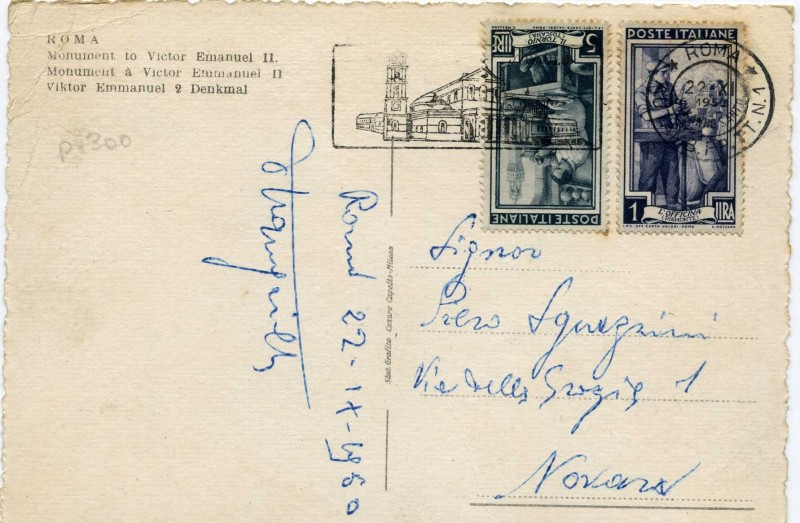 ROMA
Monument to Victor Emanuel II.
Monument à Victor Emmanuel II
Viktor Emmanuel 2 Denkmal
5
LIRE
IL TORNIO
POSTE ITALIANE
POSTE ITALIANE
1
LIRA
L'OFFICINA
(PIEMONTE)
ROMA
22 XI
Stab. Grafico Cesare Capello-Milano
Roma 22-IX-1950
Signor
Piero
Via delle Grazie 1
Novara